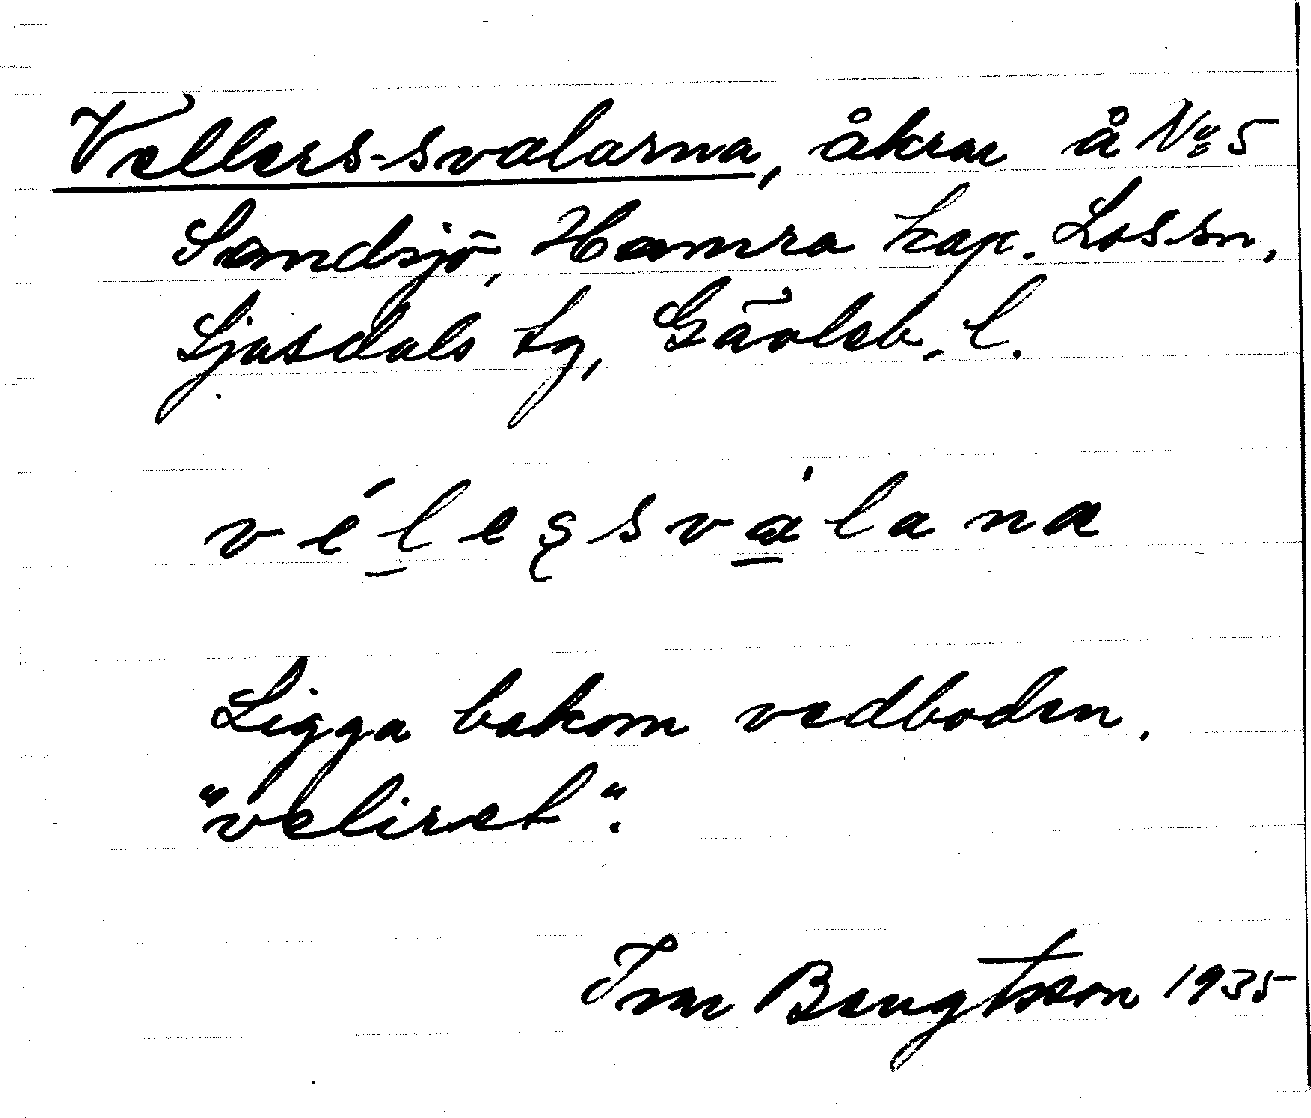 Vellers-svalarna, åkrar å No 5
Sandsjö, Hamra kap. Los sn,
Ljusdals tg, Gävleb. l.
véleşsvàlana
Ligga bakom vedboden.
"veliret".
Ivar Bengtsson 1935